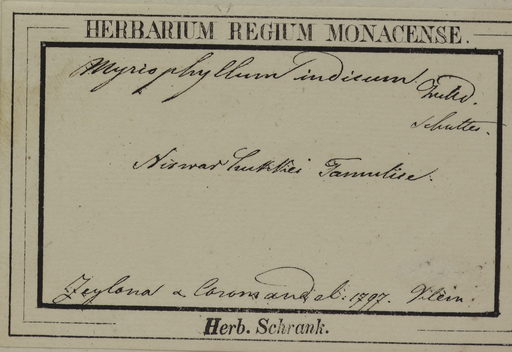 HERBARIUM REGIUM MONACENSE.
Myriophyllum indicum Willd.
Schultes.
Nirwar Tamulice.
Zeylona a Coromandel: 1797. Klein.
Herb. Schrank.